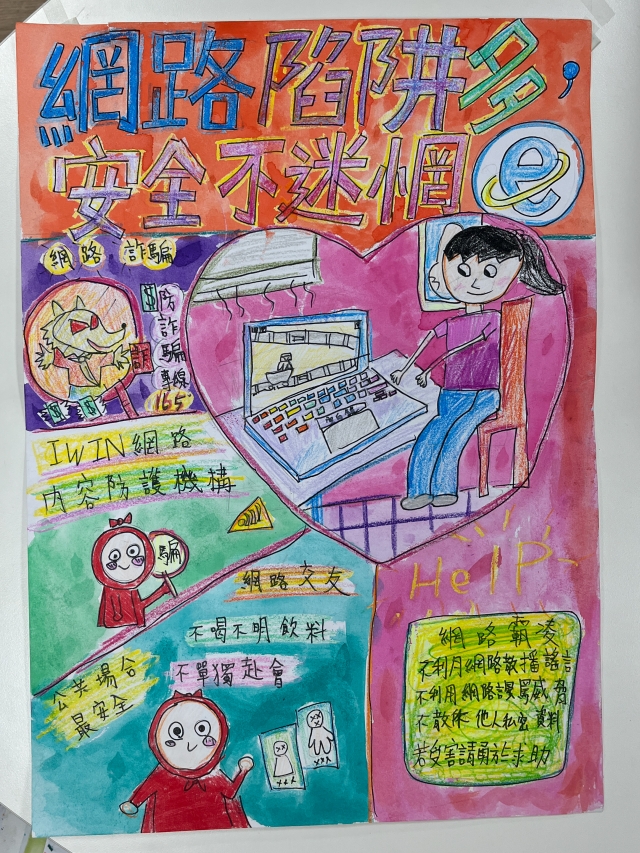 網路陷阱多，
安全不迷惘
e
網路 詐騙
$
防詐騙專線
165
$ $
IWIN網路
內容防護機構
騙
網路交友
不喝不明飲料
不單獨赴會
公共場合
最安全
HelP
網路霸凌
不利用網路散播謠言
不利用網路謾罵威脅
不散佈他人私密資料
若受害請勇於求助